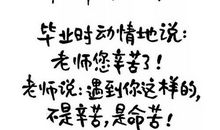 毕业时动情地说：
老师您辛苦了！
老师说：遇到你这样的，
不是辛苦，是命苦！